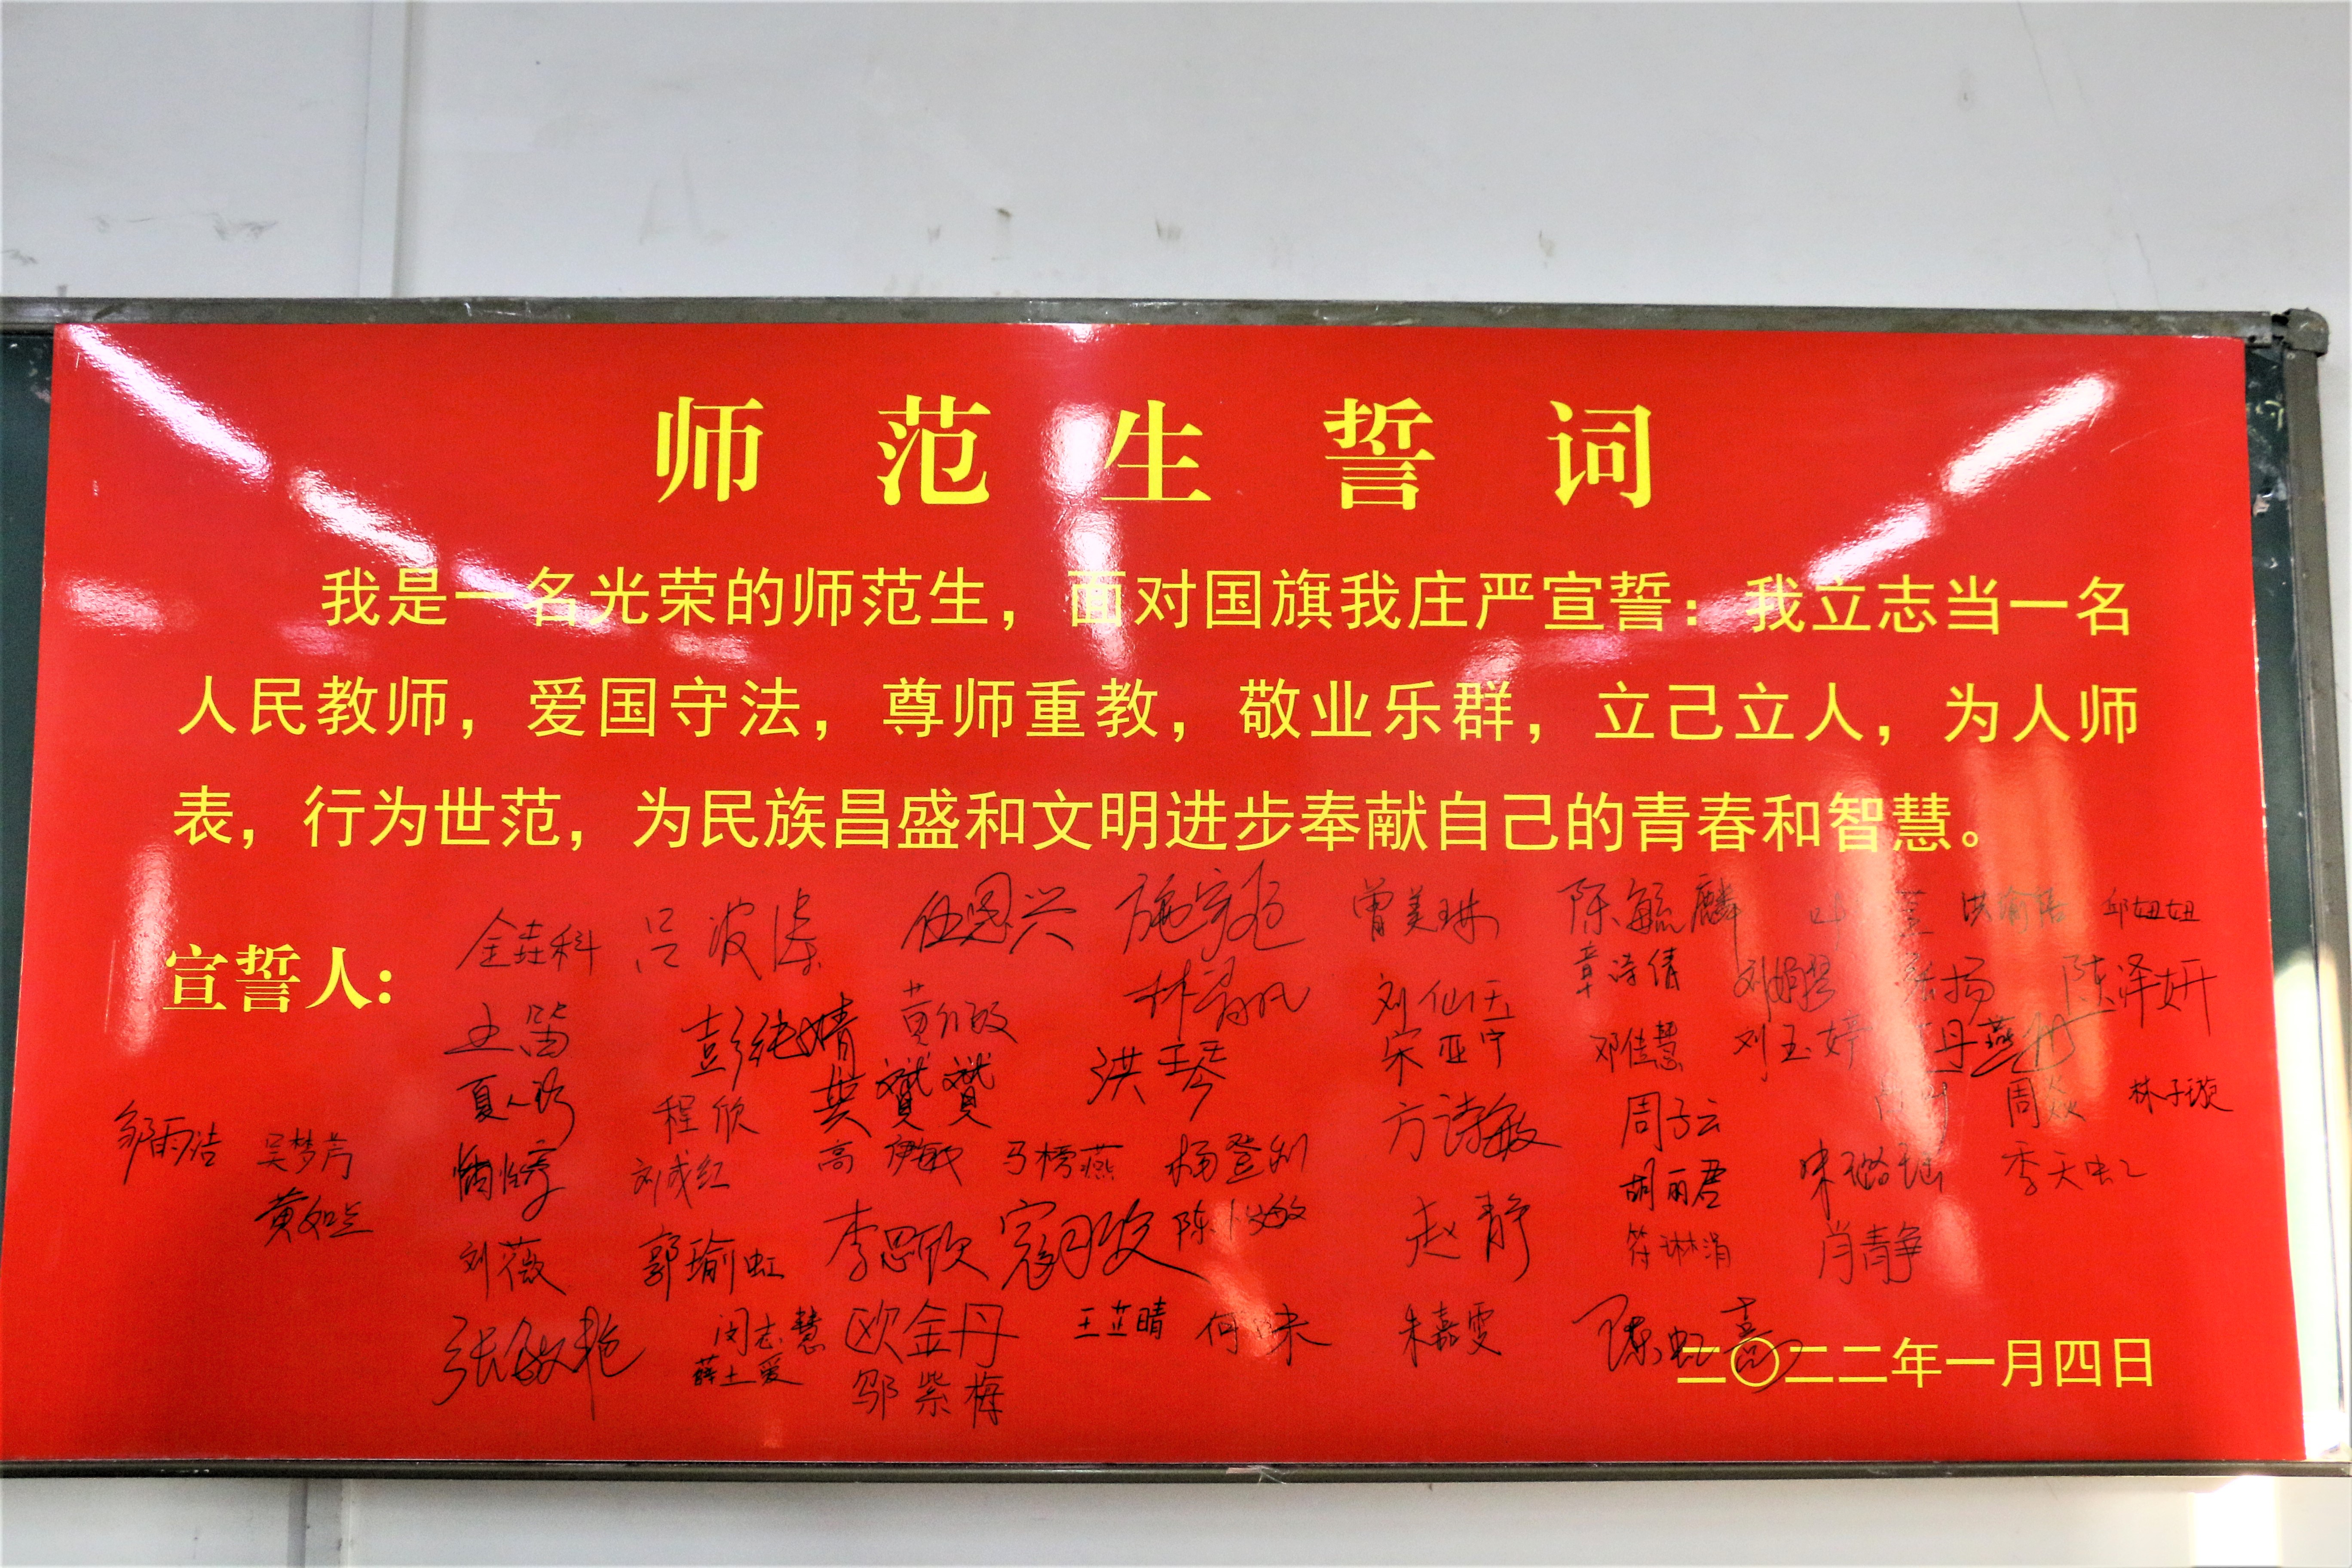 师范生誓词
我是一名光荣的师范生，面对国旗我庄严宣誓：我立志当一名
人民教师，爱国守法，尊师重教，敬业乐群，立己立人，为人师
表，行为世范，为民族昌盛和文明进步奉献自己的青春和智慧。
宣誓人：
金垚科 吕波 伍恩兴 曾美琳 陈毓麟 邱妞妞
章诗倩 张扬 陈泽妍
王笛 彭纯婧 黄 林 刘仙
洪琴 宋亚宁 邓佳慧 刘玉婷 丹燕
夏 程欣 龚赟赟 方诗敏 周子云 周焱 林子璇
邹雨洁 吴梦芳 刘成红 高伊敏 马榜燕 杨登
胡丽君 宋璐瑶 季天虹
黄如意 刘薇 郭瑜虹 李思欣 寇月姣 陈 敏 赵静 符琳涓 肖青争
张敏艳 闵志慧 欧金丹 王芷晴 何 朱嘉雯 陈虹熹
薛土爱 邬紫梅
二〇二二年一月四日